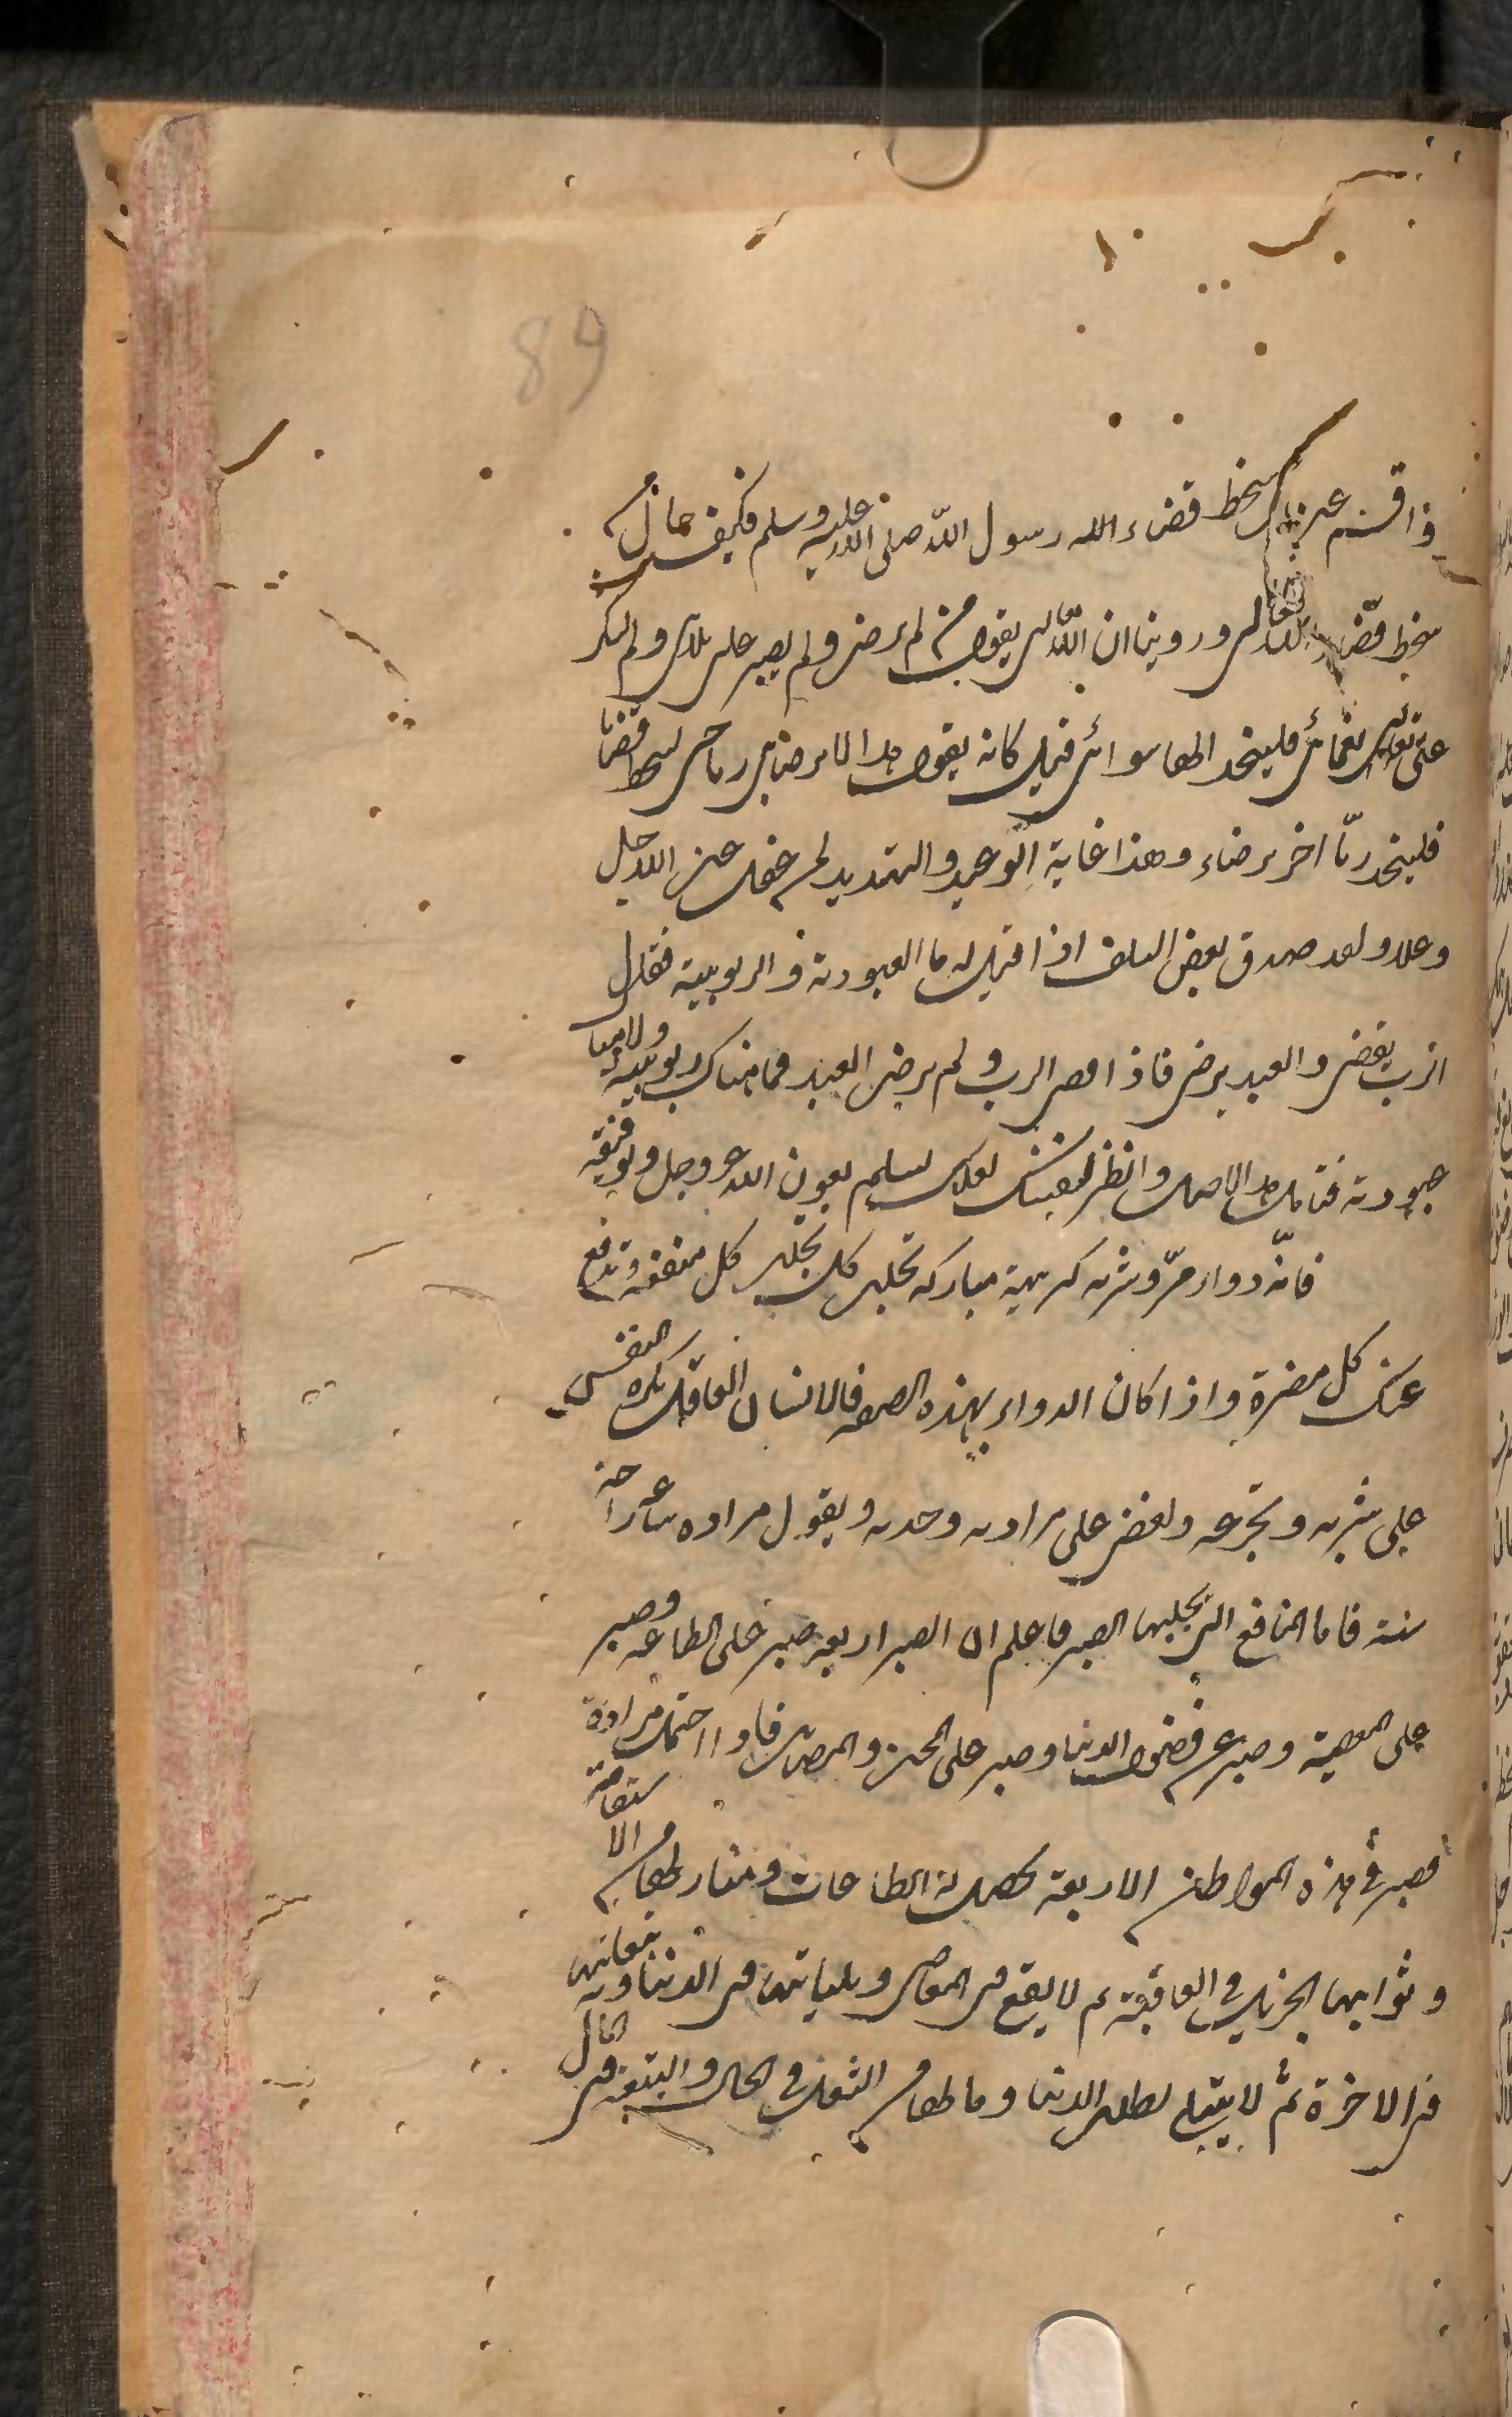 89
سخط قضاء الله رسول الله صلى الله عليه وسلم فكيف حال من
سخط قضاء الله تعالى وروينا ان الله تعالى يقول من لم يرض ولم يصبر على بلائى ولم يشكر
على نعمائى فليتخذ الها سوائى قيل كانه يقول هذا لا يرضانى ربا حين يسخط قضائى
فليتخذ ربّا اخر يرضاه وهذا غاية الوعيد والتهديد لمن عقل عن الله جل
وعلا ولقد صدق بعض السلف اذا قيل له ما العبودية والربوبية فقال
الرب يقضى والعبد يرضى فاذا قضى الرب ولم يرض العبد فما هناك ربوبية ولا
عبودية فتأمل هذا الاصل وانظر لنفسك لعلك تسلم بعون الله عز وجل وتوفيقه
فانه دواء مرّ وشربة كريهة مباركة تجلب كل منفعة وتدفع
عنك كل مضرة واذا كان الدواء بهذه الصفة فالانسان العاقل يكره النفس
على شربه وتجرعه ويغض على مرارته وحدته ويقول مرارة ساعة راحة
سنة فاما المنافع التى يجلبها الصبر فاعلم ان الصبر اربعة صبر على الطاعة وصبر
على المعصية وصبر عن فضول الدنيا وصبر على المحن والمصائب فاذا احتمل مرارة
الصبر فى هذه المواطن الاربعة تحصل له الطاعات ومنازلها من الاستقامة
وثوابها الجزيل فى العاقبة ثم لا يقع فى المعاصى وبلياتها فى الدنيا وتبعاتها
فى الاخرة ثم لا يبتلى بطلب الدنيا وما لها من الشغل فى الحال والتبعة فى المآل